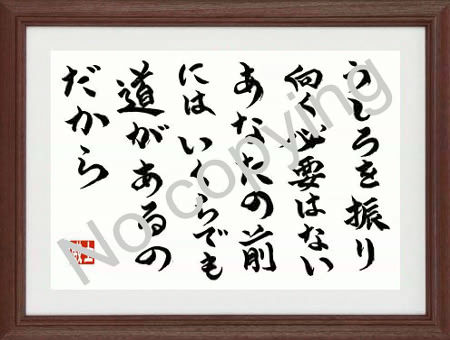 うしろを振り
向く必要はない
あなたの前
にはいくらでも
道があるの
だから
No copying